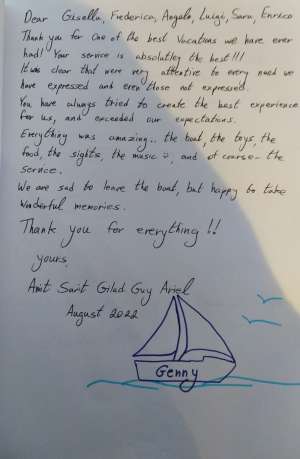 Dear Gisella, Frederica, Angelo, Luigi, Sara, Enrico
Thank you for one of the best Vacations we have ever
had! Your service is absolutley the best!!!
It was clear that were very attentive to every need we
have expressed and even those not expressed.
You have always tried to create the best experience
for us, and exceeded our expectations.
Everything was amazing.. the boat, the toys, the
food, the sights, the music :), and of coarse - the
service.
We are sad to leave the boat, but happy to take
wonderful memories.
Thank you for everything !!
yours,
Amit Sarit Gilad Guy Ariel
August 2022
Genny